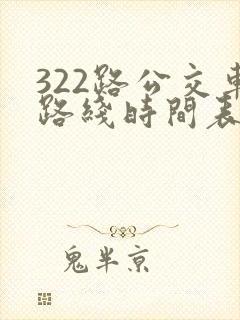 322路公交車
路綫時間表
鬼半京